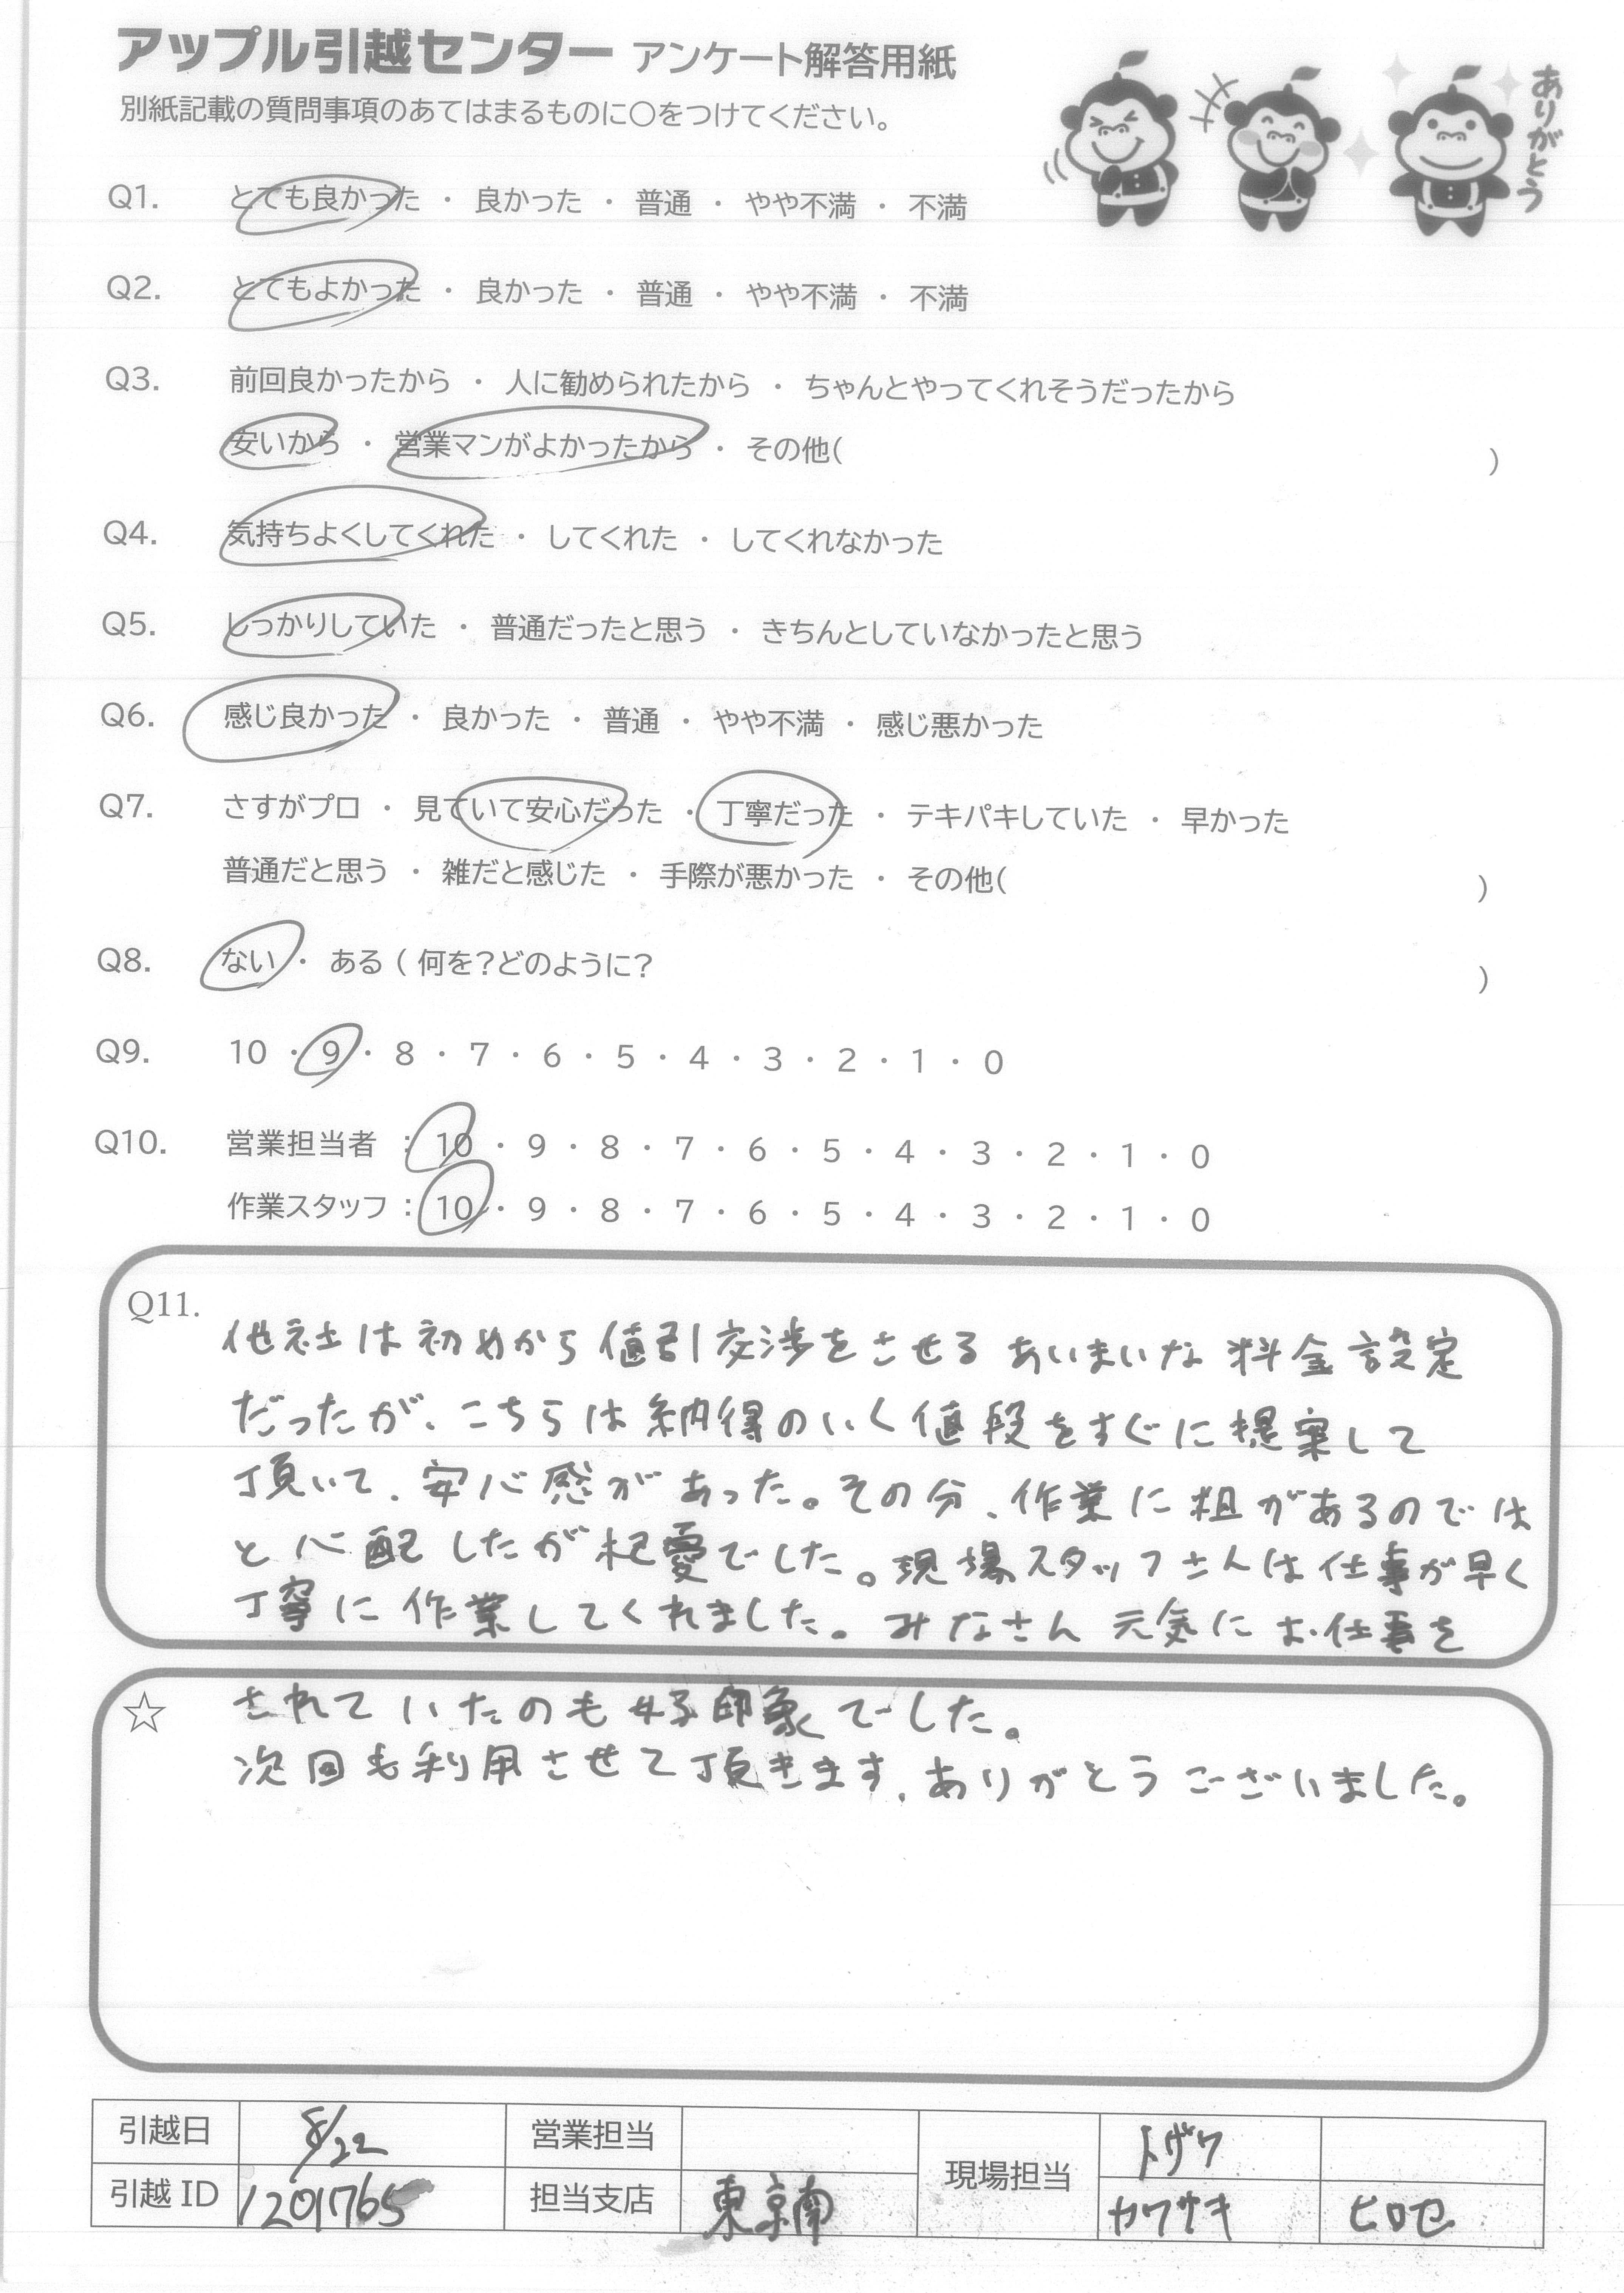 アップル引越センター アンケート解答用紙
別紙記載の質問事項のあてはまるものに○をつけてください。
ありがとう
Q1. とても良かった ・ 良かった ・ 普通 ・ やや不満 ・ 不満
Q2. とてもよかった ・ 良かった ・ 普通 ・ やや不満 ・ 不満
Q3. 前回良かったから ・ 人に勧められたから ・ ちゃんとやってくれそうだったから
安いから ・ 営業マンがよかったから ・ その他( )
Q4. 気持ちよくしてくれた ・ してくれた ・ してくれなかった
Q5. しっかりしていた ・ 普通だったと思う ・ きちんとしていなかったと思う
Q6. 感じ良かった ・ 良かった ・ 普通 ・ やや不満 ・ 感じ悪かった
Q7. さすがプロ ・ 見ていて安心だった ・ 丁寧だった ・ テキパキしていた ・ 早かった
普通だと思う ・ 雑だと感じた ・ 手際が悪かった ・ その他( )
Q8. ない ・ ある ( 何を?どのように? )
Q9. 10 ・ 9 ・ 8 ・ 7 ・ 6 ・ 5 ・ 4 ・ 3 ・ 2 ・ 1 ・ 0
Q10. 営業担当者 : 10 ・ 9 ・ 8 ・ 7 ・ 6 ・ 5 ・ 4 ・ 3 ・ 2 ・ 1 ・ 0
作業スタッフ : 10 ・ 9 ・ 8 ・ 7 ・ 6 ・ 5 ・ 4 ・ 3 ・ 2 ・ 1 ・ 0
Q11. 他社は初めから値引交渉をさせるあいまいな料金設定
だったが、こちらは納得のいく値段をすぐに提案して
頂いて、安心感があった。その分、作業に粗があるのでは
と心配したが杞憂でした。現場スタッフさんは仕事が早く
丁寧に作業してくれました。みなさん元気にお仕事を
☆ されていたのも好印象でした。
次回も利用させて頂きます。ありがとうございました。
引越日 8/22 営業担当 現場担当 トザワ
引越ID 1201765 担当支店 東京南 カワサキ ヒロセ